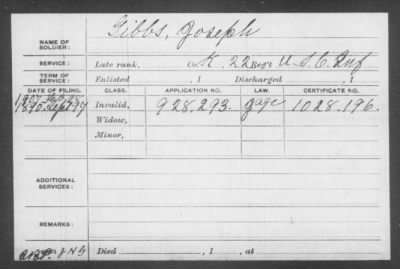 NAME OF SOLDIER: Gibbs, Joseph
SERVICE: Late rank, Co. K. 22 Reg't U.S.C. Inf
TERM OF SERVICE: Enlisted , 1 Discharged , 1
DATE OF FILING. CLASS. APPLICATION NO. LAW. CERTIFICATE NO.
1890. Invalid, 928.293. 1028.196.
Widow,
Minor,
ADDITIONAL SERVICES:
REMARKS:
Died , 1 , at